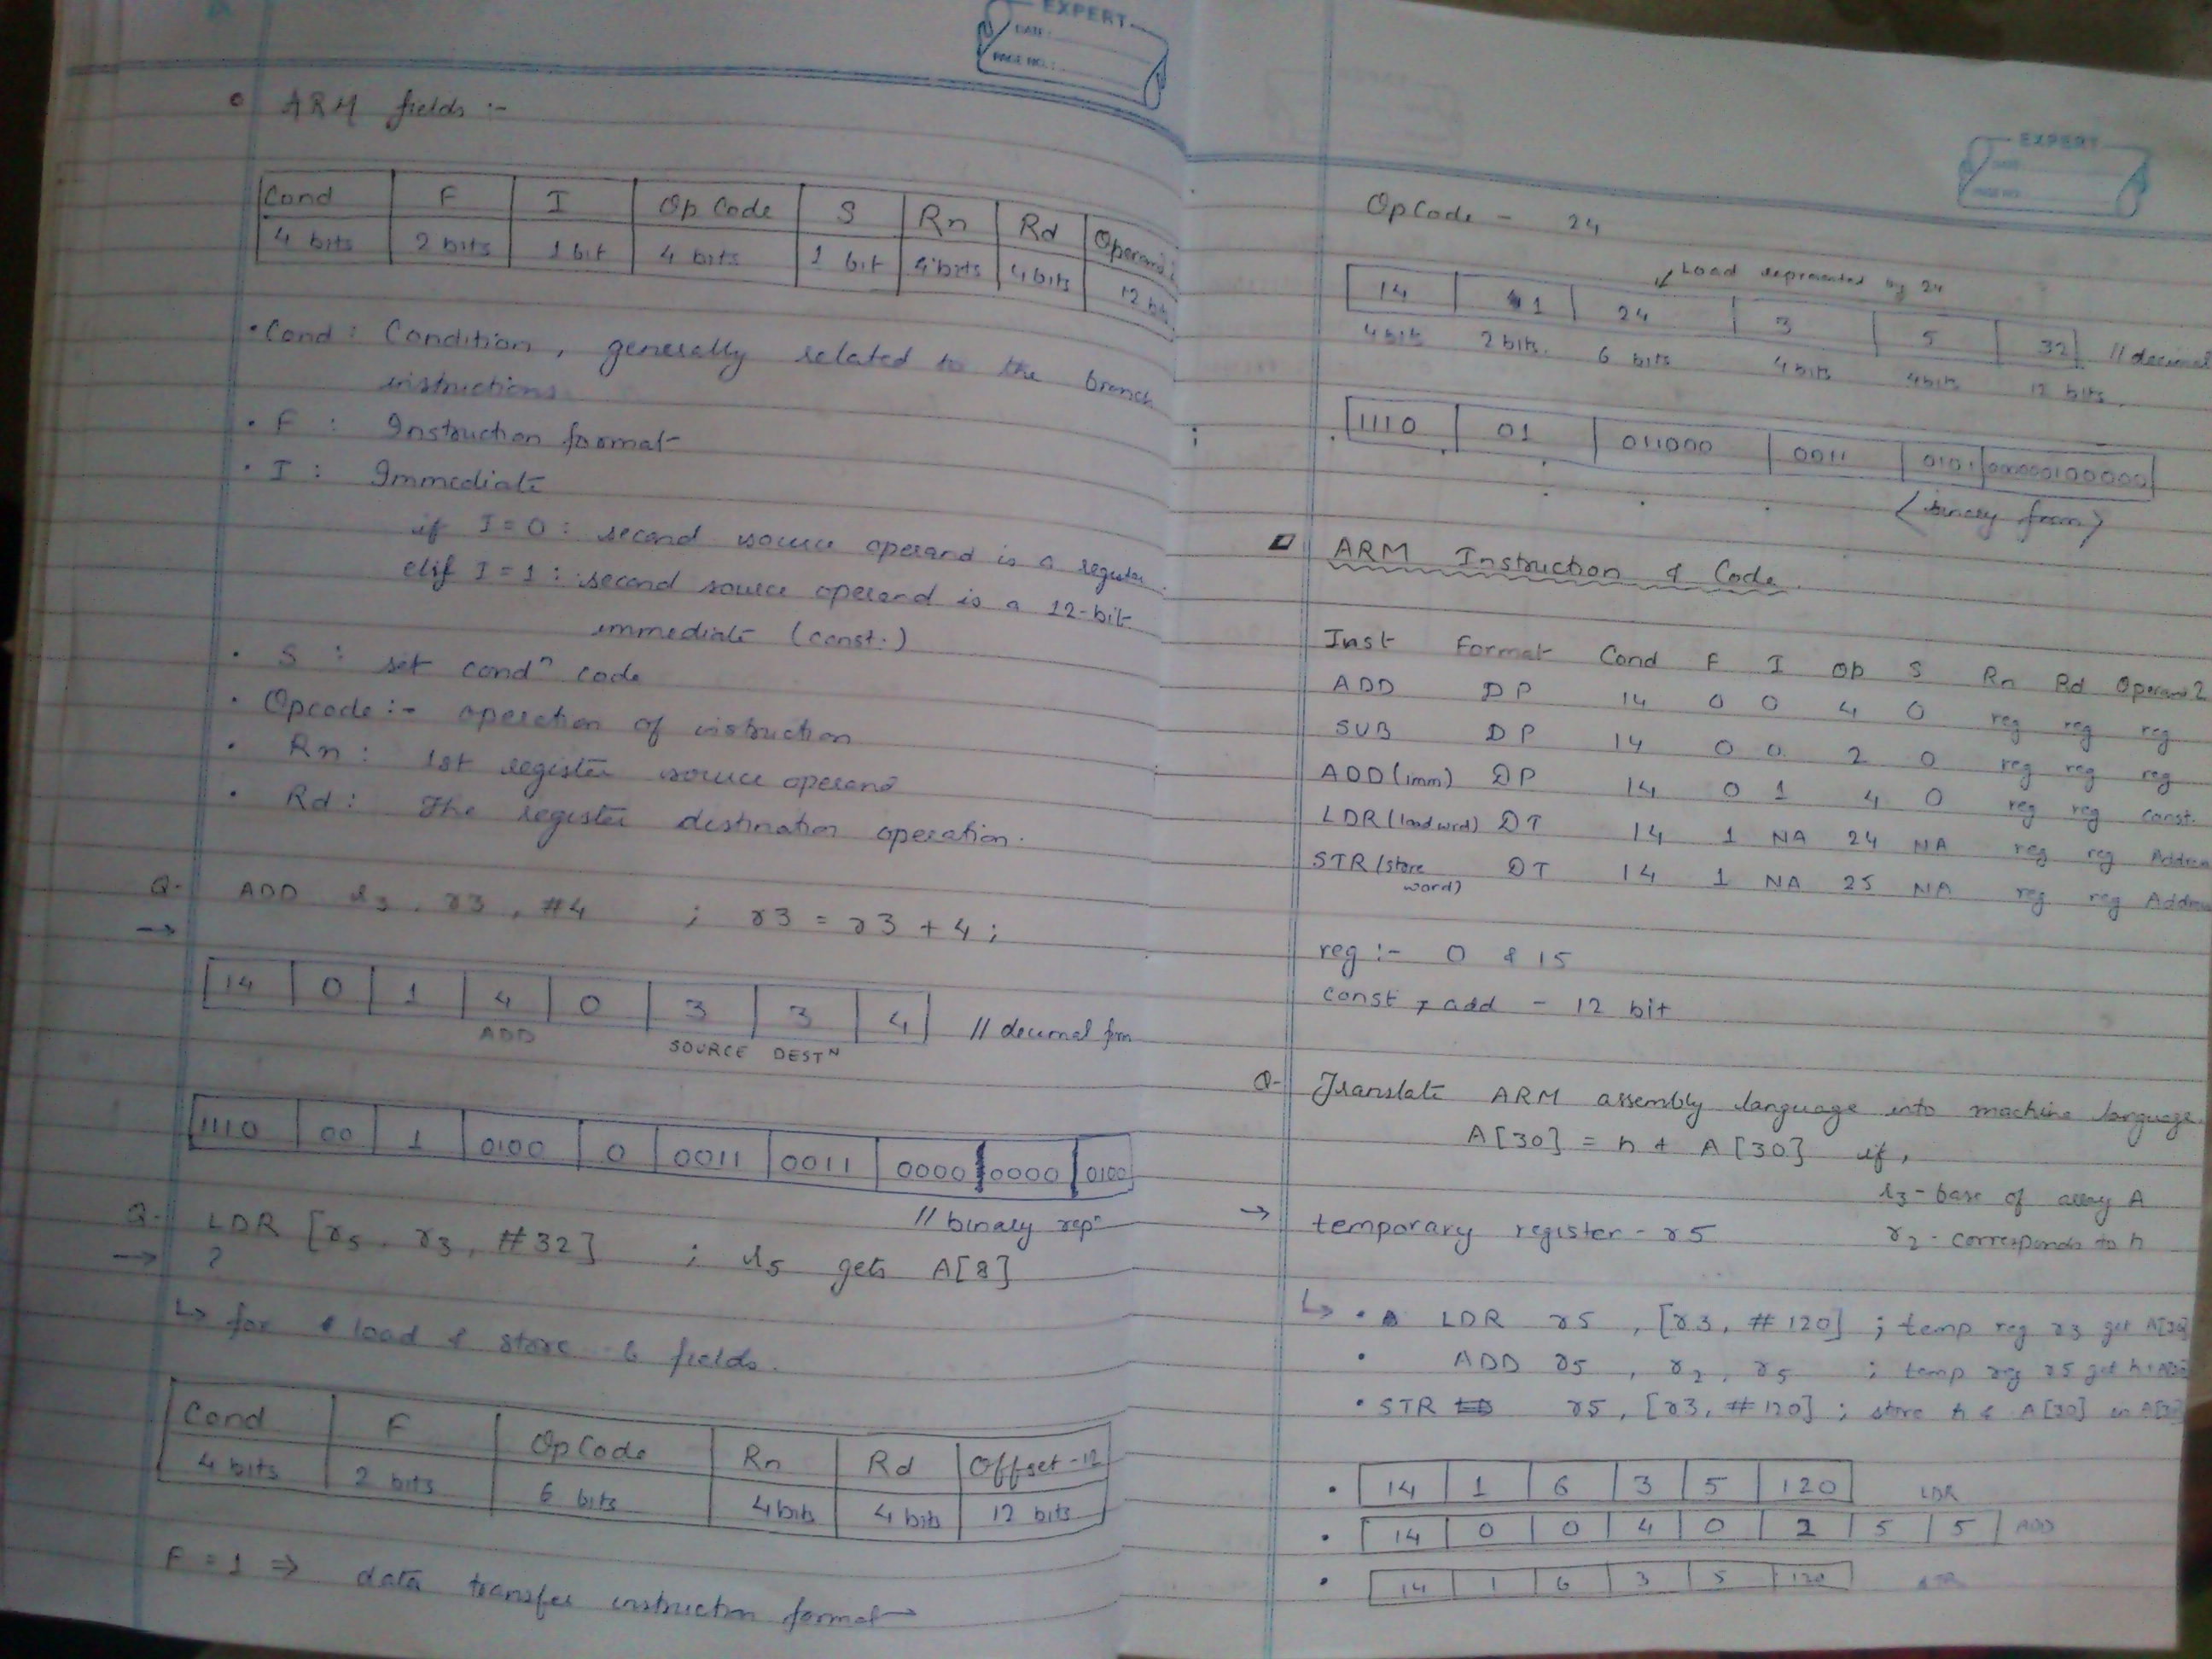 EXPERT
DATE :
PAGE NO. :
ARM fields :-
Cond F I Op Code S Rn Rd Operand
4 bits 2 bits 1 bit 4 bits 1 bit 4 bits 4 bits 12 bit
• Cond : Condition , generally related to the branch
instructions
• F : Instruction format
• I : Immediate
if I = 0 : second source operand is a register
elif I = 1 : second source operand is a 12-bit
immediate (const.)
• S : set condn code
• Opcode :- operation of instruction
• Rn : 1st register source operand
• Rd : The register destination operation.
Q. ADD r3 , r3 , #4 ; r3 = r3 + 4 ;
→
14 0 1 4 0 3 3 4 // decimal frm
ADD SOURCE DESTN
1110 00 1 0100 0 0011 0011 0000 0000 0100
// binary repn
Q. LDR [r5 , r3 , #32] ; r5 gets A[8]
→ ?
↳ for load & store 6 fields.
Cond F OpCode Rn Rd Offset-12
4 bits 2 bits 6 bits 4 bits 4 bits 12 bits
F = 1 ⇒ data transfer instruction format
EXPERT
DATE
PAGE NO.
OpCode - 24
Load represented by 24
14 1 24 3 5 32 // decimal
4 bit 2 bits. 6 bits 4 bits 4 bits 12 bits.
1110 01 011000 0011 0101 000000100000
< binary from >
ARM Instruction & Code.
Inst Format Cond F I Op S Rn Rd Operand 2
ADD DP 14 0 0 4 0 reg reg reg
SUB DP 14 0 0 2 0 reg reg reg
ADD (imm) DP 14 0 1 4 0 reg reg const.
LDR (load wrd) DT 14 1 NA 24 NA reg reg Address
STR (store word) DT 14 1 NA 25 NA reg reg Address
reg :- 0 & 15
const , add - 12 bit
Q- Translate ARM assembly language into machine language.
A[30] = h + A[30] if,
r3 - base of array A
→ temporary register - r5
r2 - corresponds to h
↳ • LDR r5 , [r3, #120] ; temp reg r3 get A[30]
• ADD r5 , r2 , r5 ; temp reg r5 get h+A[30]
• STR r5 , [r3, #120] ; store h & A[30] in A[30]
• 14 1 6 3 5 120 LDR
• 14 0 0 4 0 2 5 5 ADD
• 14 1 6 3 5 120 STR